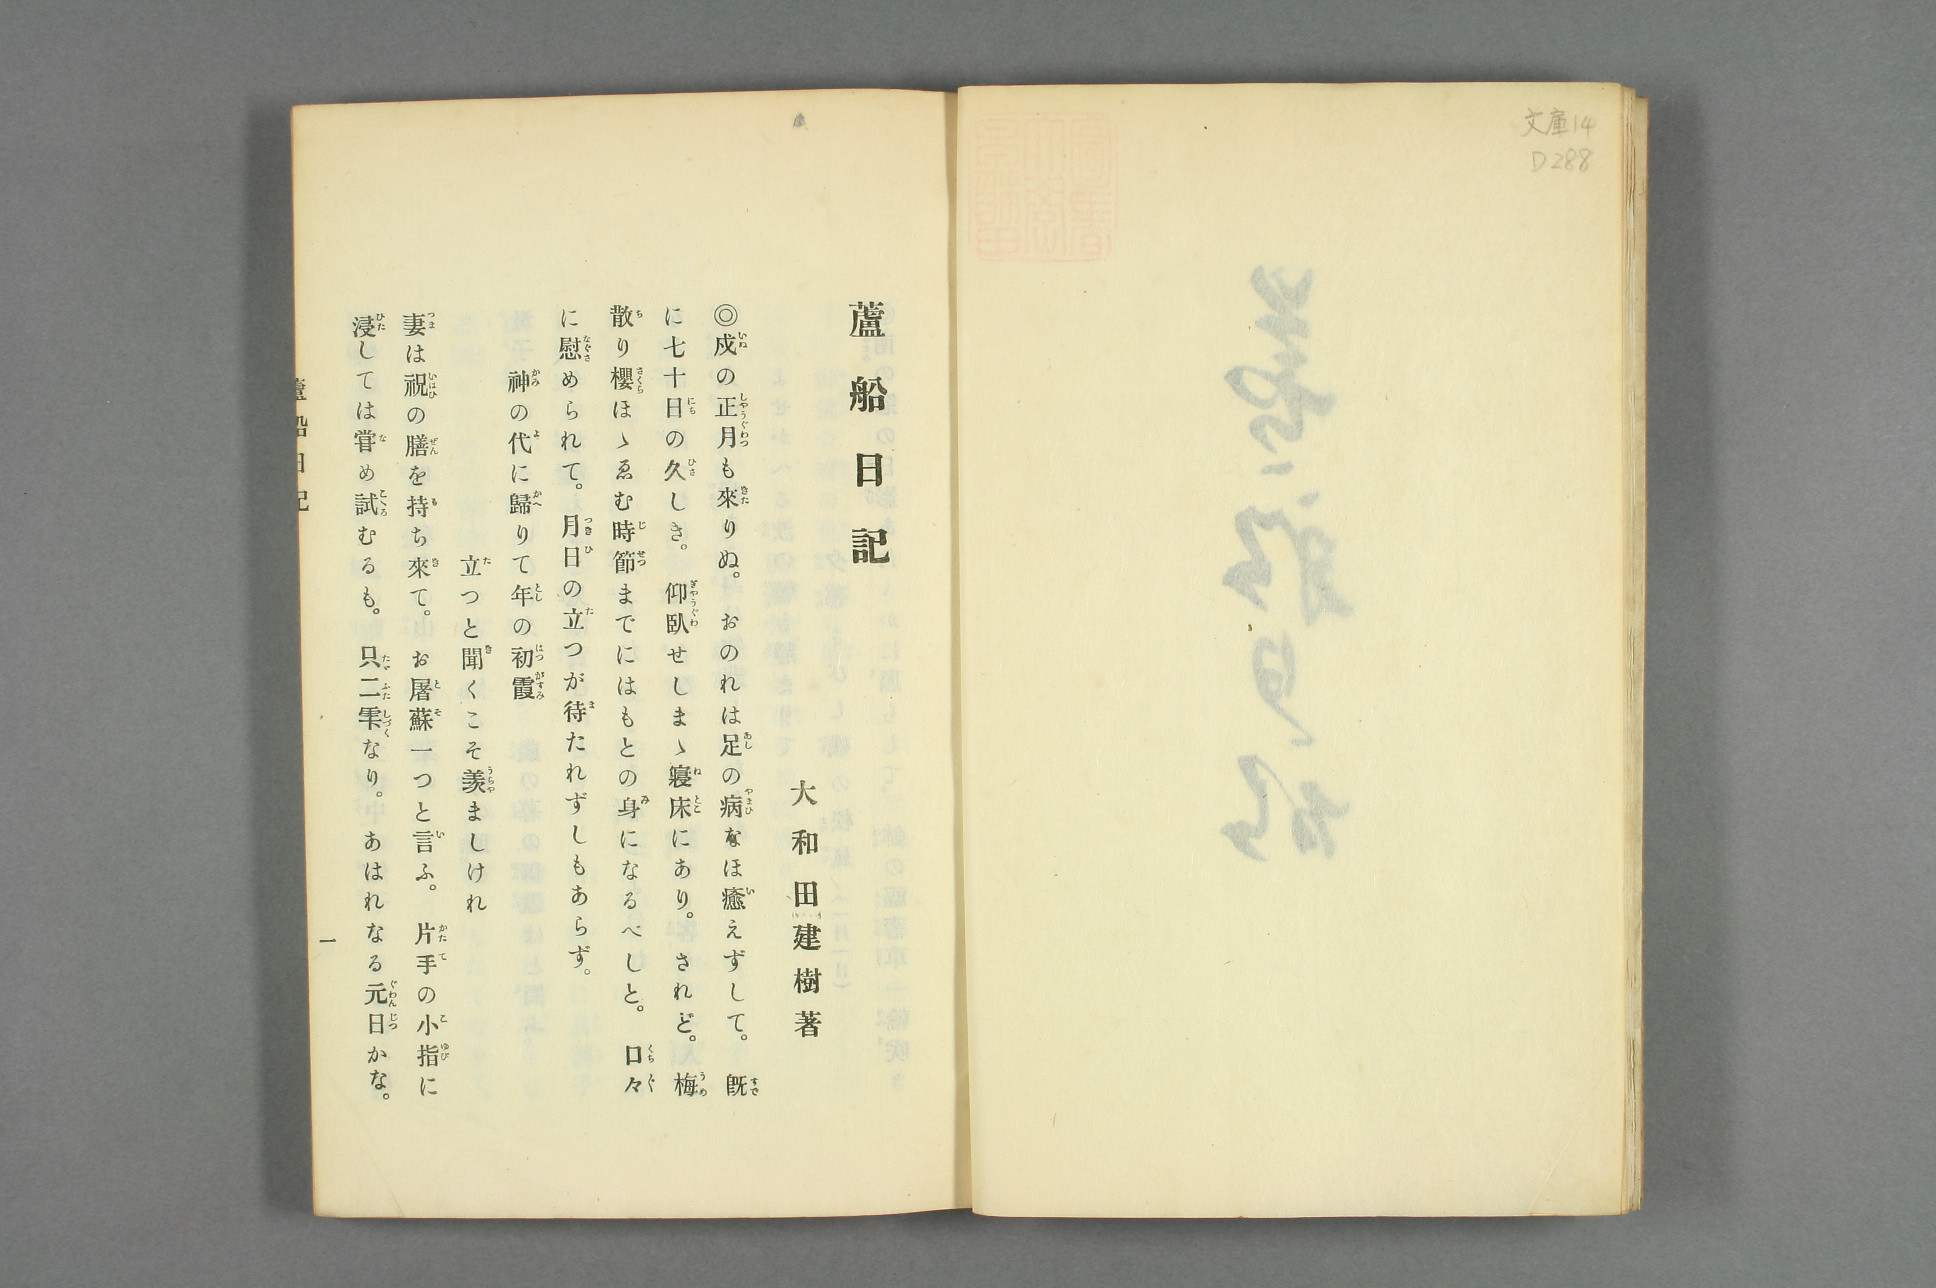 文庫14
D288
蘆船日記
大和田建樹著
◎戍の正月も來りぬ。おのれは足の病なほ癒えずして。既
に七十日の久しき。仰臥せしまゝ寢床にあり。されど。梅
散り櫻ほゝゑむ時節まではもとの身になるべしと。口々
に慰められて。月日の立つが待たれずしもあらず。
神の代に歸りて年の初霞
立つと聞くこそ羨ましけれ
妻は祝の膳を持ち來て。お屠蘇一つと言ふ。片手の小指に
浸しては甞め試むるも。只二雫なり。あはれなる元日かな。
蘆船日記
一